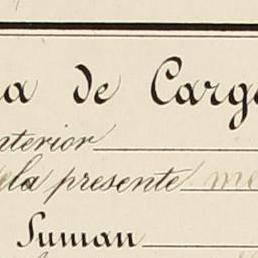 a de Carg
nterior
la presente me
Suman